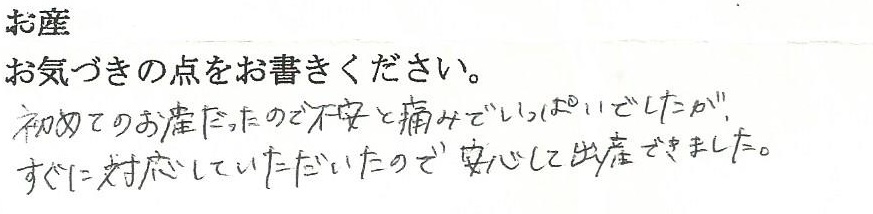 お産
お気づきの点をお書きください。
初めてのお産だったので不安と痛みでいっぱいでしたが、
すぐに対応していただいたので安心して出産できました。